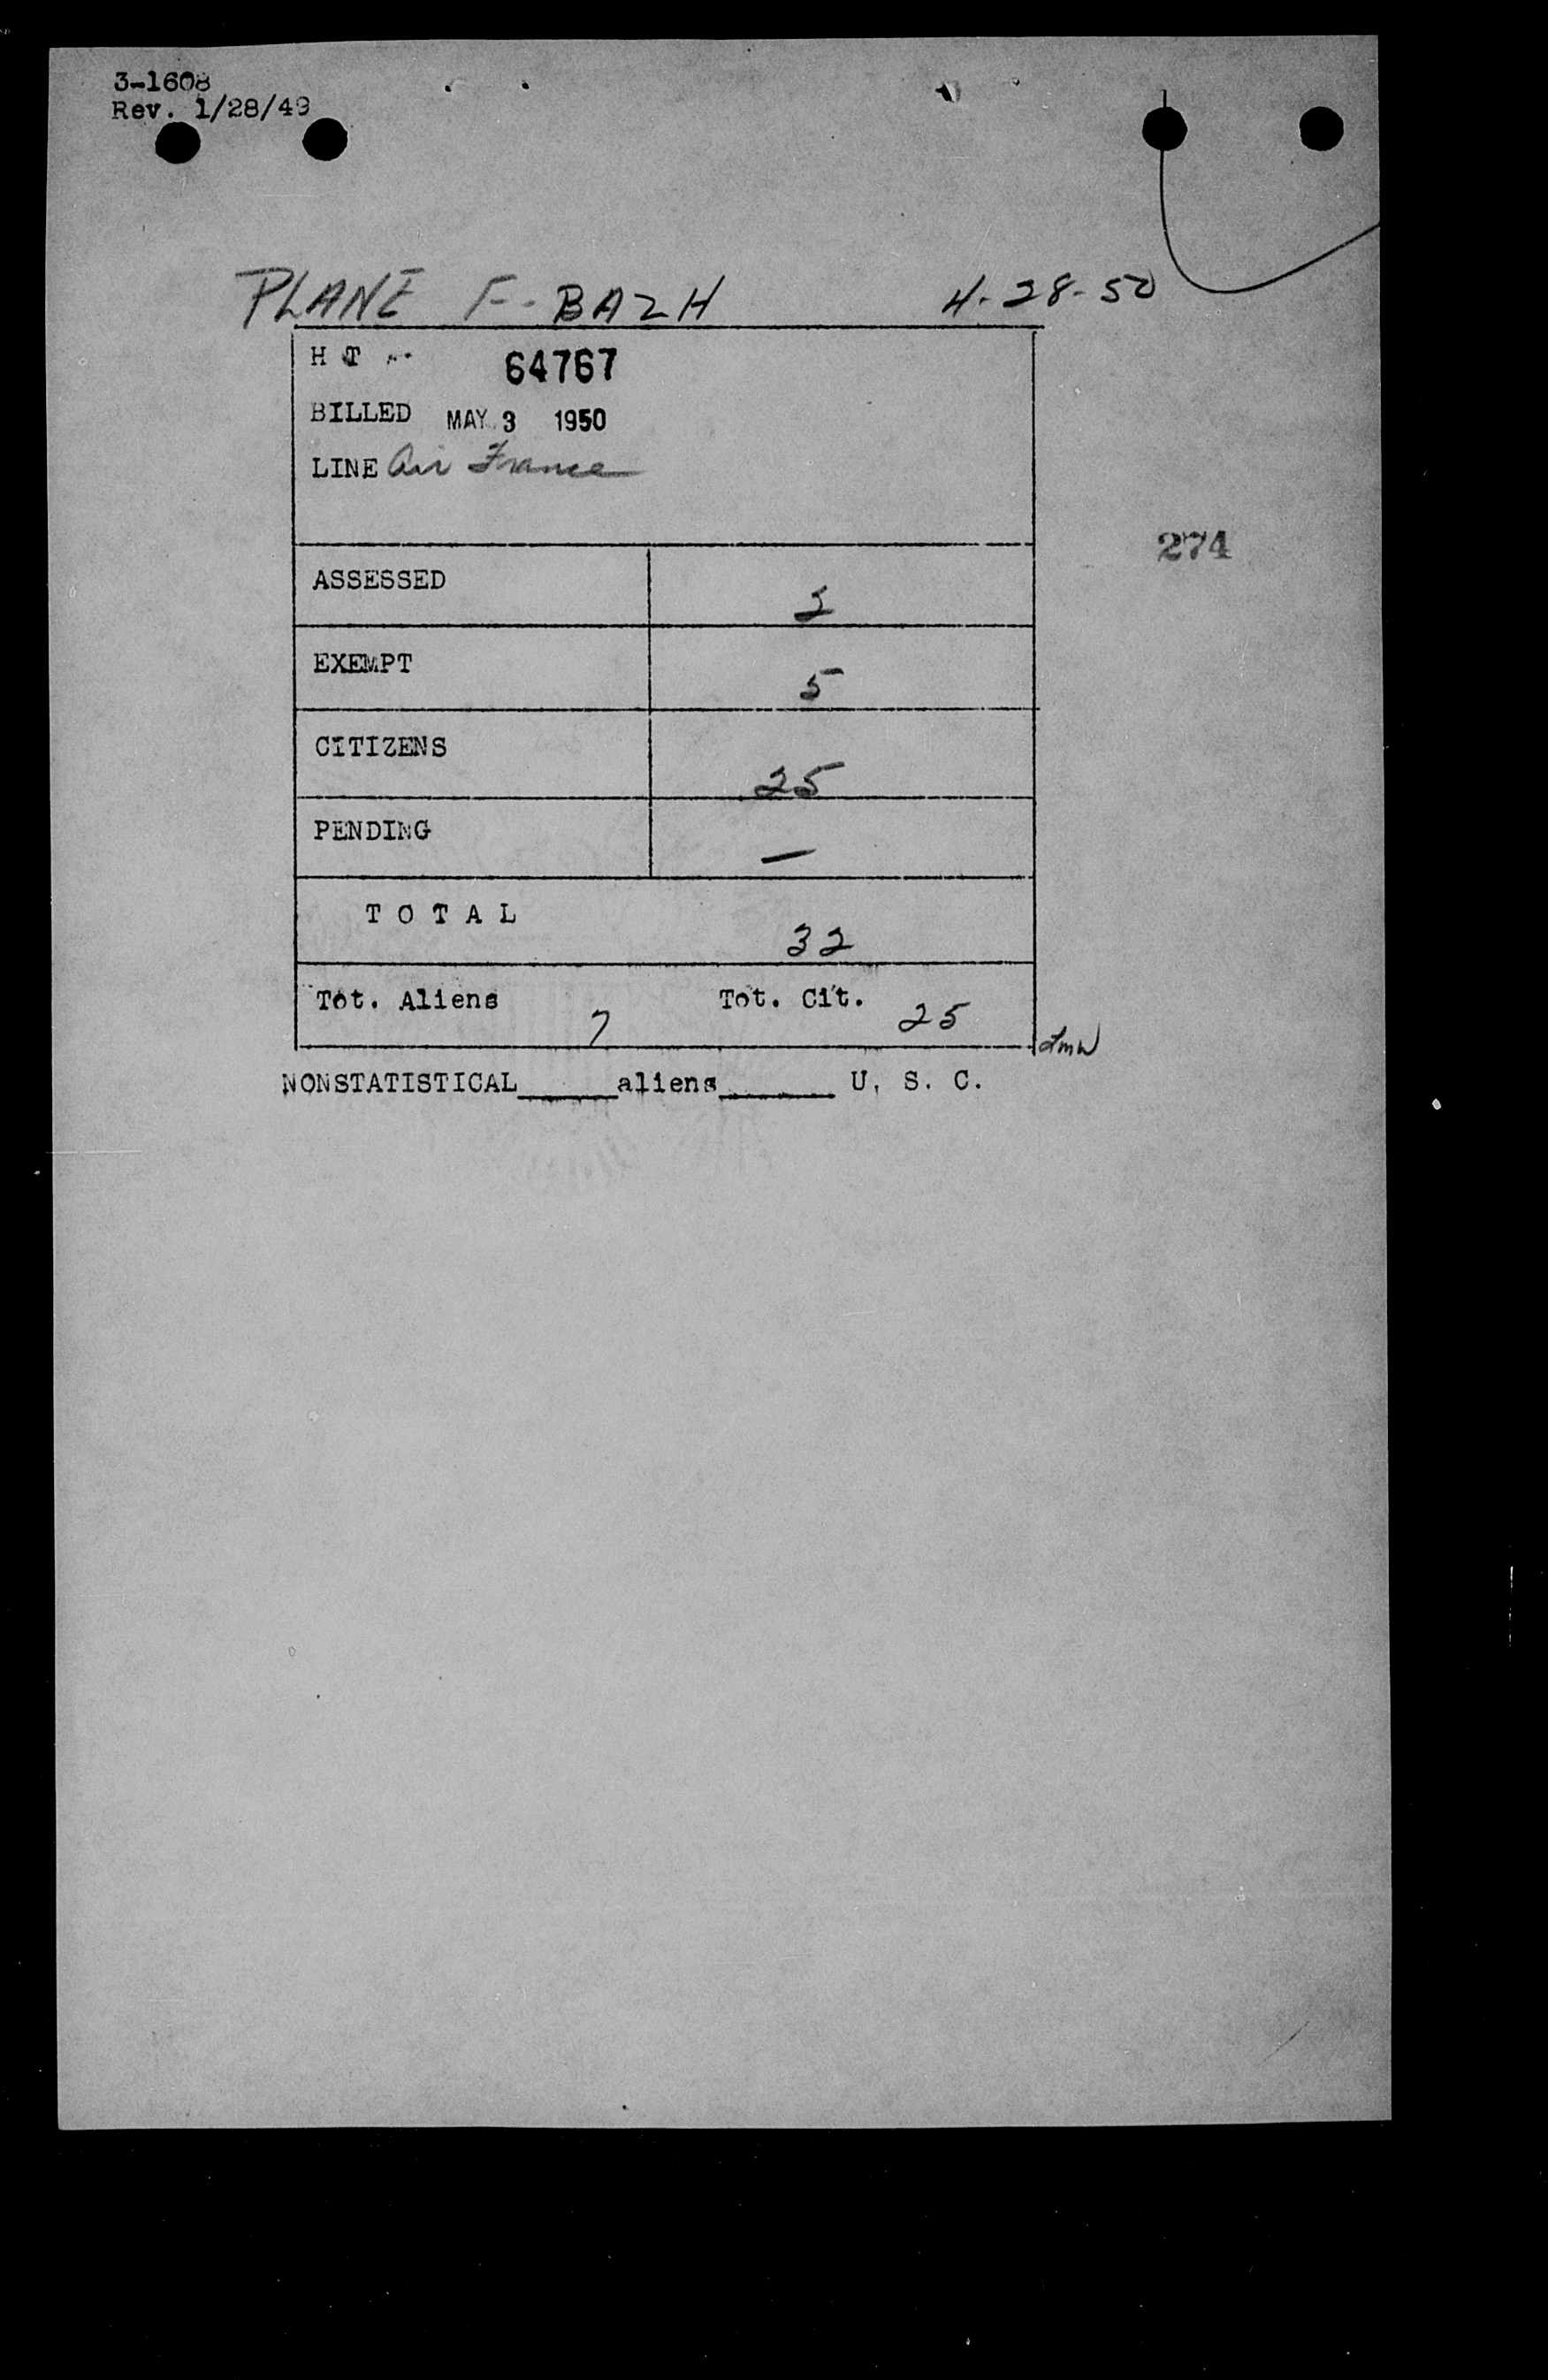 3-1608
Rev. 1/28/49
PLANE F-BAZH 4-28-50
H T 64767
BILLED MAY 3 1950
LINE Air France
274
ASSESSED 2
EXEMPT 5
CITIZENS 25
PENDING —
T O T A L 32
Tot. Aliens 7 Tot. Cit. 25
NONSTATISTICAL______aliens_______ U. S. C.